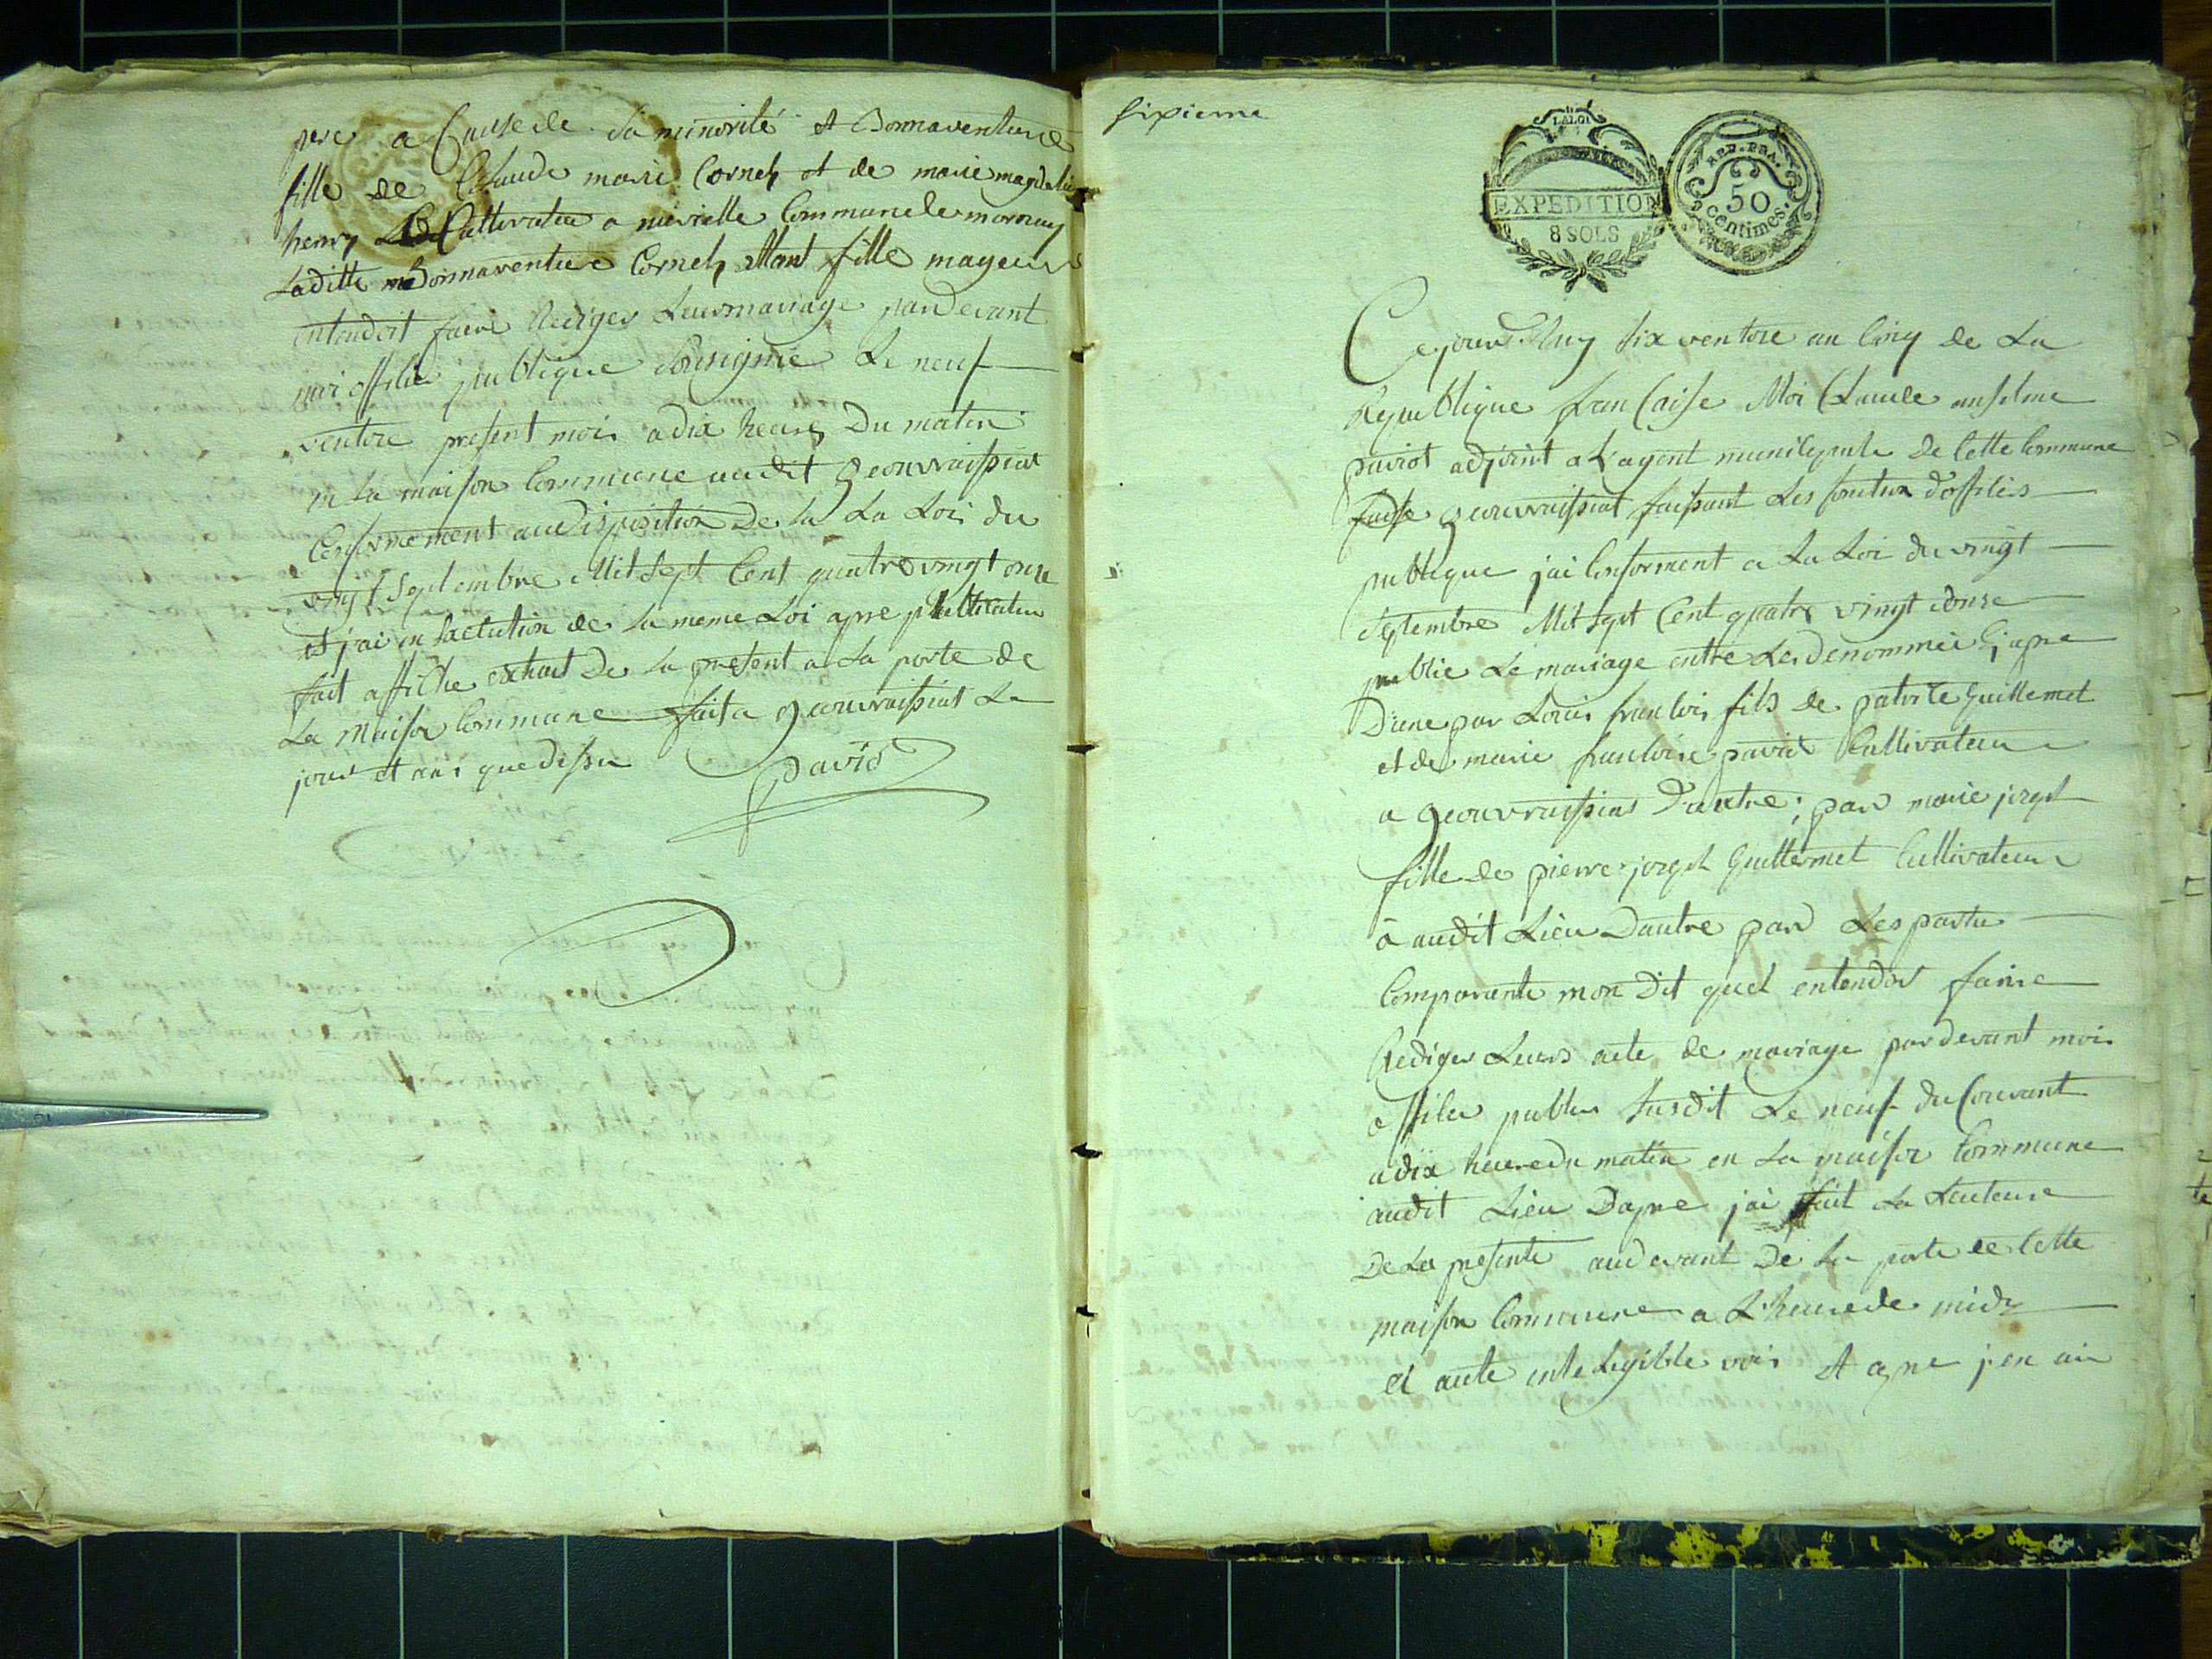 pere a Cause de sa minorité et Bonnaventure
fille de Claude marie Cornet et de marie magdelaine
henry Cultivateur a nierielle Commune de mornay
Laditte Bonnaventure Cornet Etant fille mageure
entendoit faire Rediger Leur mariage pardevant
moi officier publique Sousignie Le neuf
ventose present mois a dix heures Du matin
en la maison Commune audit geouvraissiat
Conformement au disposition De la La Loi du
vingt Septembre Mil Sept Cent quatre vingt onze
et j'ai en de la meme Loi apre
fait affiche extrait De la present a La porte de
La Maison Commune fait a geouvraissiat Le
jour et ans que dessu David
sixieme
LA LOI
EXPEDITION
8 SOLS
REP. FRA.
50
centimes.
Ce jourdhuy six ventose an Cinq de La
Republique franCaise Moi Claude anselme
paviot adjoint a L'agent municipale de Cette Commune
geouvraissiat faissant Les d'officis
publique jai Conforment a La Loi du vingt
Septembre Mil Sept Cent quatre vingt donze
publie Le mariage entre Les denommée Ci apre
D'une par Louis franCois fils de Guillemet
et de marie francoise paviot Cultivateur
a geouvraissias D'autre; par marie joseph
fille de pierre joseph Guillermet Cultivateur
a audit Lieu Dautre par Les partie
Comparante mon Dit quel entendoi faire
Rediger Leurs acte de mariage pardevant moi
officier public Susdit Le neuf du Courant
a dix heure du matin en La maison Commune
audit Lieu Dapre jai fait La Lecteure
De La presente au devant De La porte de Cette
maison Commune a L'heure de midy
et aute intelegible voix Et apre j'en ai